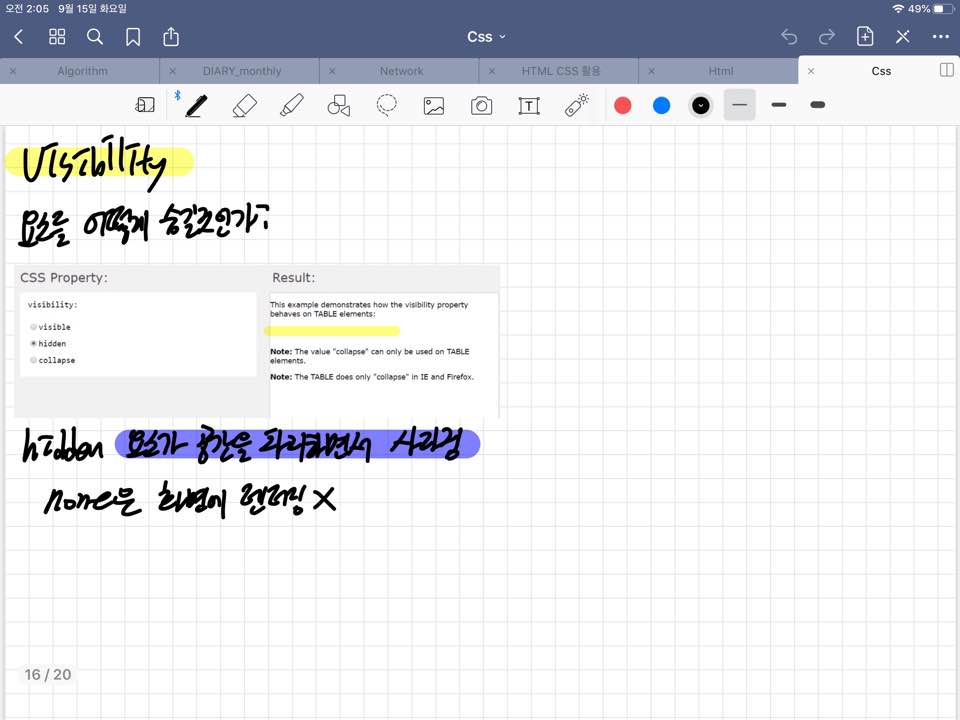 오전 2:05 9월 15일 화요일
49%
Css
Algorithm
DIARY_monthly
Network
HTML CSS 활용
Html
Css
Visibility
요소를 어떻게 숨길 것인가?
CSS Property:
visibility:
visible
hidden
collapse
Result:
This example demonstrates how the visibility property
behaves on TABLE elements:
Note: The value "collapse" can only be used on TABLE
elements.
Note: The TABLE does only "collapse" in IE and Firefox.
hidden 요소가 공간을 차지하면서 사라짐
none은 화면에 렌더링 X
16 / 20